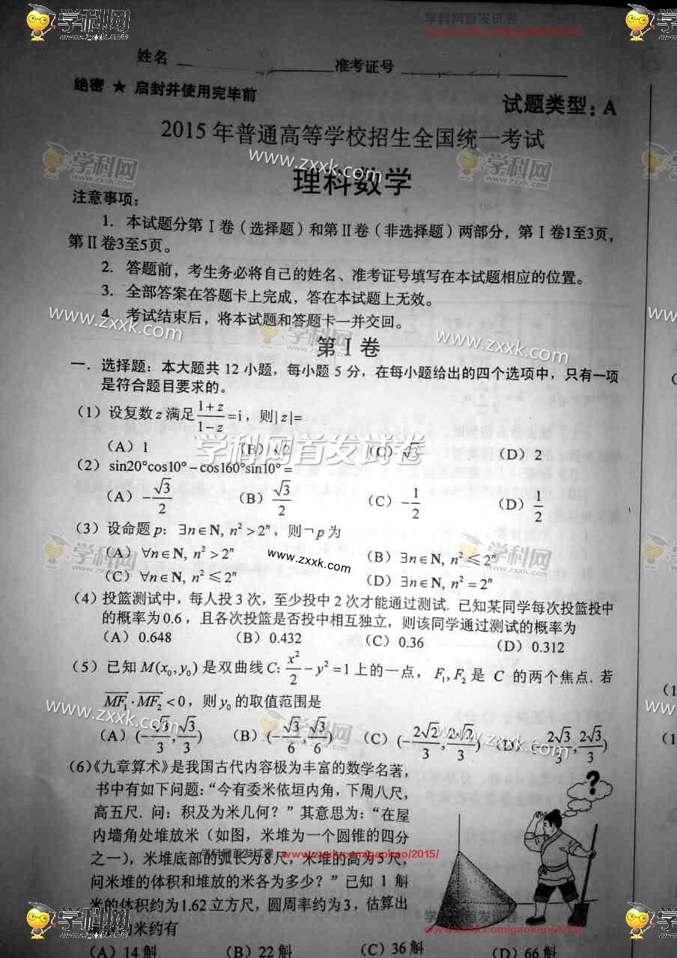 学科网首发试卷
姓名 准考证号
绝密 ★ 启封并使用完毕前
试题类型:A
2015年普通高等学校招生全国统一考试
理科数学
注意事项:
1. 本试题分第Ⅰ卷(选择题)和第Ⅱ卷(非选择题)两部分,第Ⅰ卷1至3页,
第Ⅱ卷3至5页。
2. 答题前,考生务必将自己的姓名、准考证号填写在本试题相应的位置。
3. 全部答案在答题卡上完成,答在本试题上无效。
4. 考试结束后,将本试题和答题卡一并交回。
第Ⅰ卷
一. 选择题:本大题共12小题,每小题5分,在每小题给出的四个选项中,只有一项
是符合题目要求的。
(1)设复数z满足(1+z)/(1−z)=i,则|z|=
(A)1 (B)√2 (C)√3 (D)2
(2)sin20°cos10°−cos160°sin10°=
(A)−√3/2 (B)√3/2 (C)−1/2 (D)1/2
(3)设命题p:∃n∈N, n²>2ⁿ,则¬p为
(A)∀n∈N, n²>2ⁿ (B)∃n∈N, n²≤2ⁿ
(C)∀n∈N, n²≤2ⁿ (D)∃n∈N, n²=2ⁿ
(4)投篮测试中,每人投3次,至少投中2次才能通过测试. 已知某同学每次投篮投中
的概率为0.6,且各次投篮是否投中相互独立,则该同学通过测试的概率为
(A)0.648 (B)0.432 (C)0.36 (D)0.312
(5)已知M(x₀,y₀)是双曲线C:x²/2−y²=1上的一点,F₁,F₂是C的两个焦点.若
MF₁·MF₂<0,则y₀的取值范围是
(A)(−√3/3,√3/3) (B)(−√3/6,√3/6) (C)(−2√2/3,2√2/3) (D)(−2√3/3,2√3/3)
(6)《九章算术》是我国古代内容极为丰富的数学名著,
书中有如下问题:“今有委米依垣内角,下周八尺,
高五尺.问:积及为米几何?”其意思为:“在屋
内墙角处堆放米(如图,米堆为一个圆锥的四分
之一),米堆底部的弧长为8尺,米堆的高为5尺,
问米堆的体积和堆放的米各为多少?”已知1斛
米的体积约为1.62立方尺,圆周率约为3,估算出
堆放的米约有
(A)14斛 (B)22斛 (C)36斛 (D)66斛
学科网
www.zxxk.com
学科网首发试卷